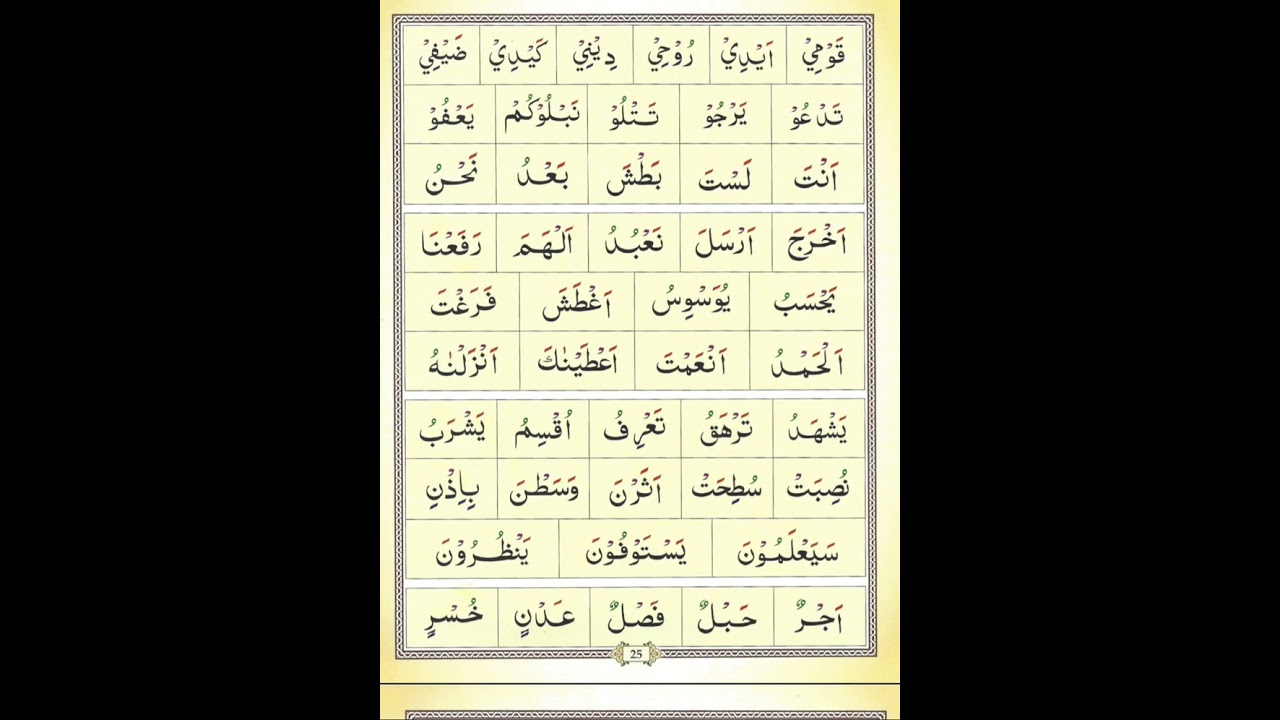 قَوْمِيْ اَيْدِيْ رُوْحِيْ دِيْنِيْ كَيْدِيْ ضَيْفِيْ
تَدْعُوْ يَرْجُوْ تَتْلُوْ نَبْلُوْكُمْ يَعْفُوْ
اَنْتَ لَسْتَ بَطْشَ بَعْدُ نَحْنُ
اَخْرَجَ اَرْسَلَ نَعْبُدُ اَلْهَمَ رَفَعْنَا
يَحْسَبُ يُوَسْوِسُ اَغْطَشَ فَرَغْتَ
اَلْحَمْدُ اَنْعَمْتَ اَعْطَيْنٰكَ اَنْزَلْنٰهُ
يَشْهَدُ تَرْهَقُ تَعْرِفُ اُقْسِمُ يَشْرَبُ
نُصِبَتْ سُطِحَتْ اَثَرْنَ وَسَطْنَ بِاِذْنِ
سَيَعْلَمُوْنَ يَسْتَوْفُوْنَ يَنْظُرُوْنَ
اَجْرٌ حَبْلٌ فَصْلٌ عَدْنٍ خُسْرٍ
25